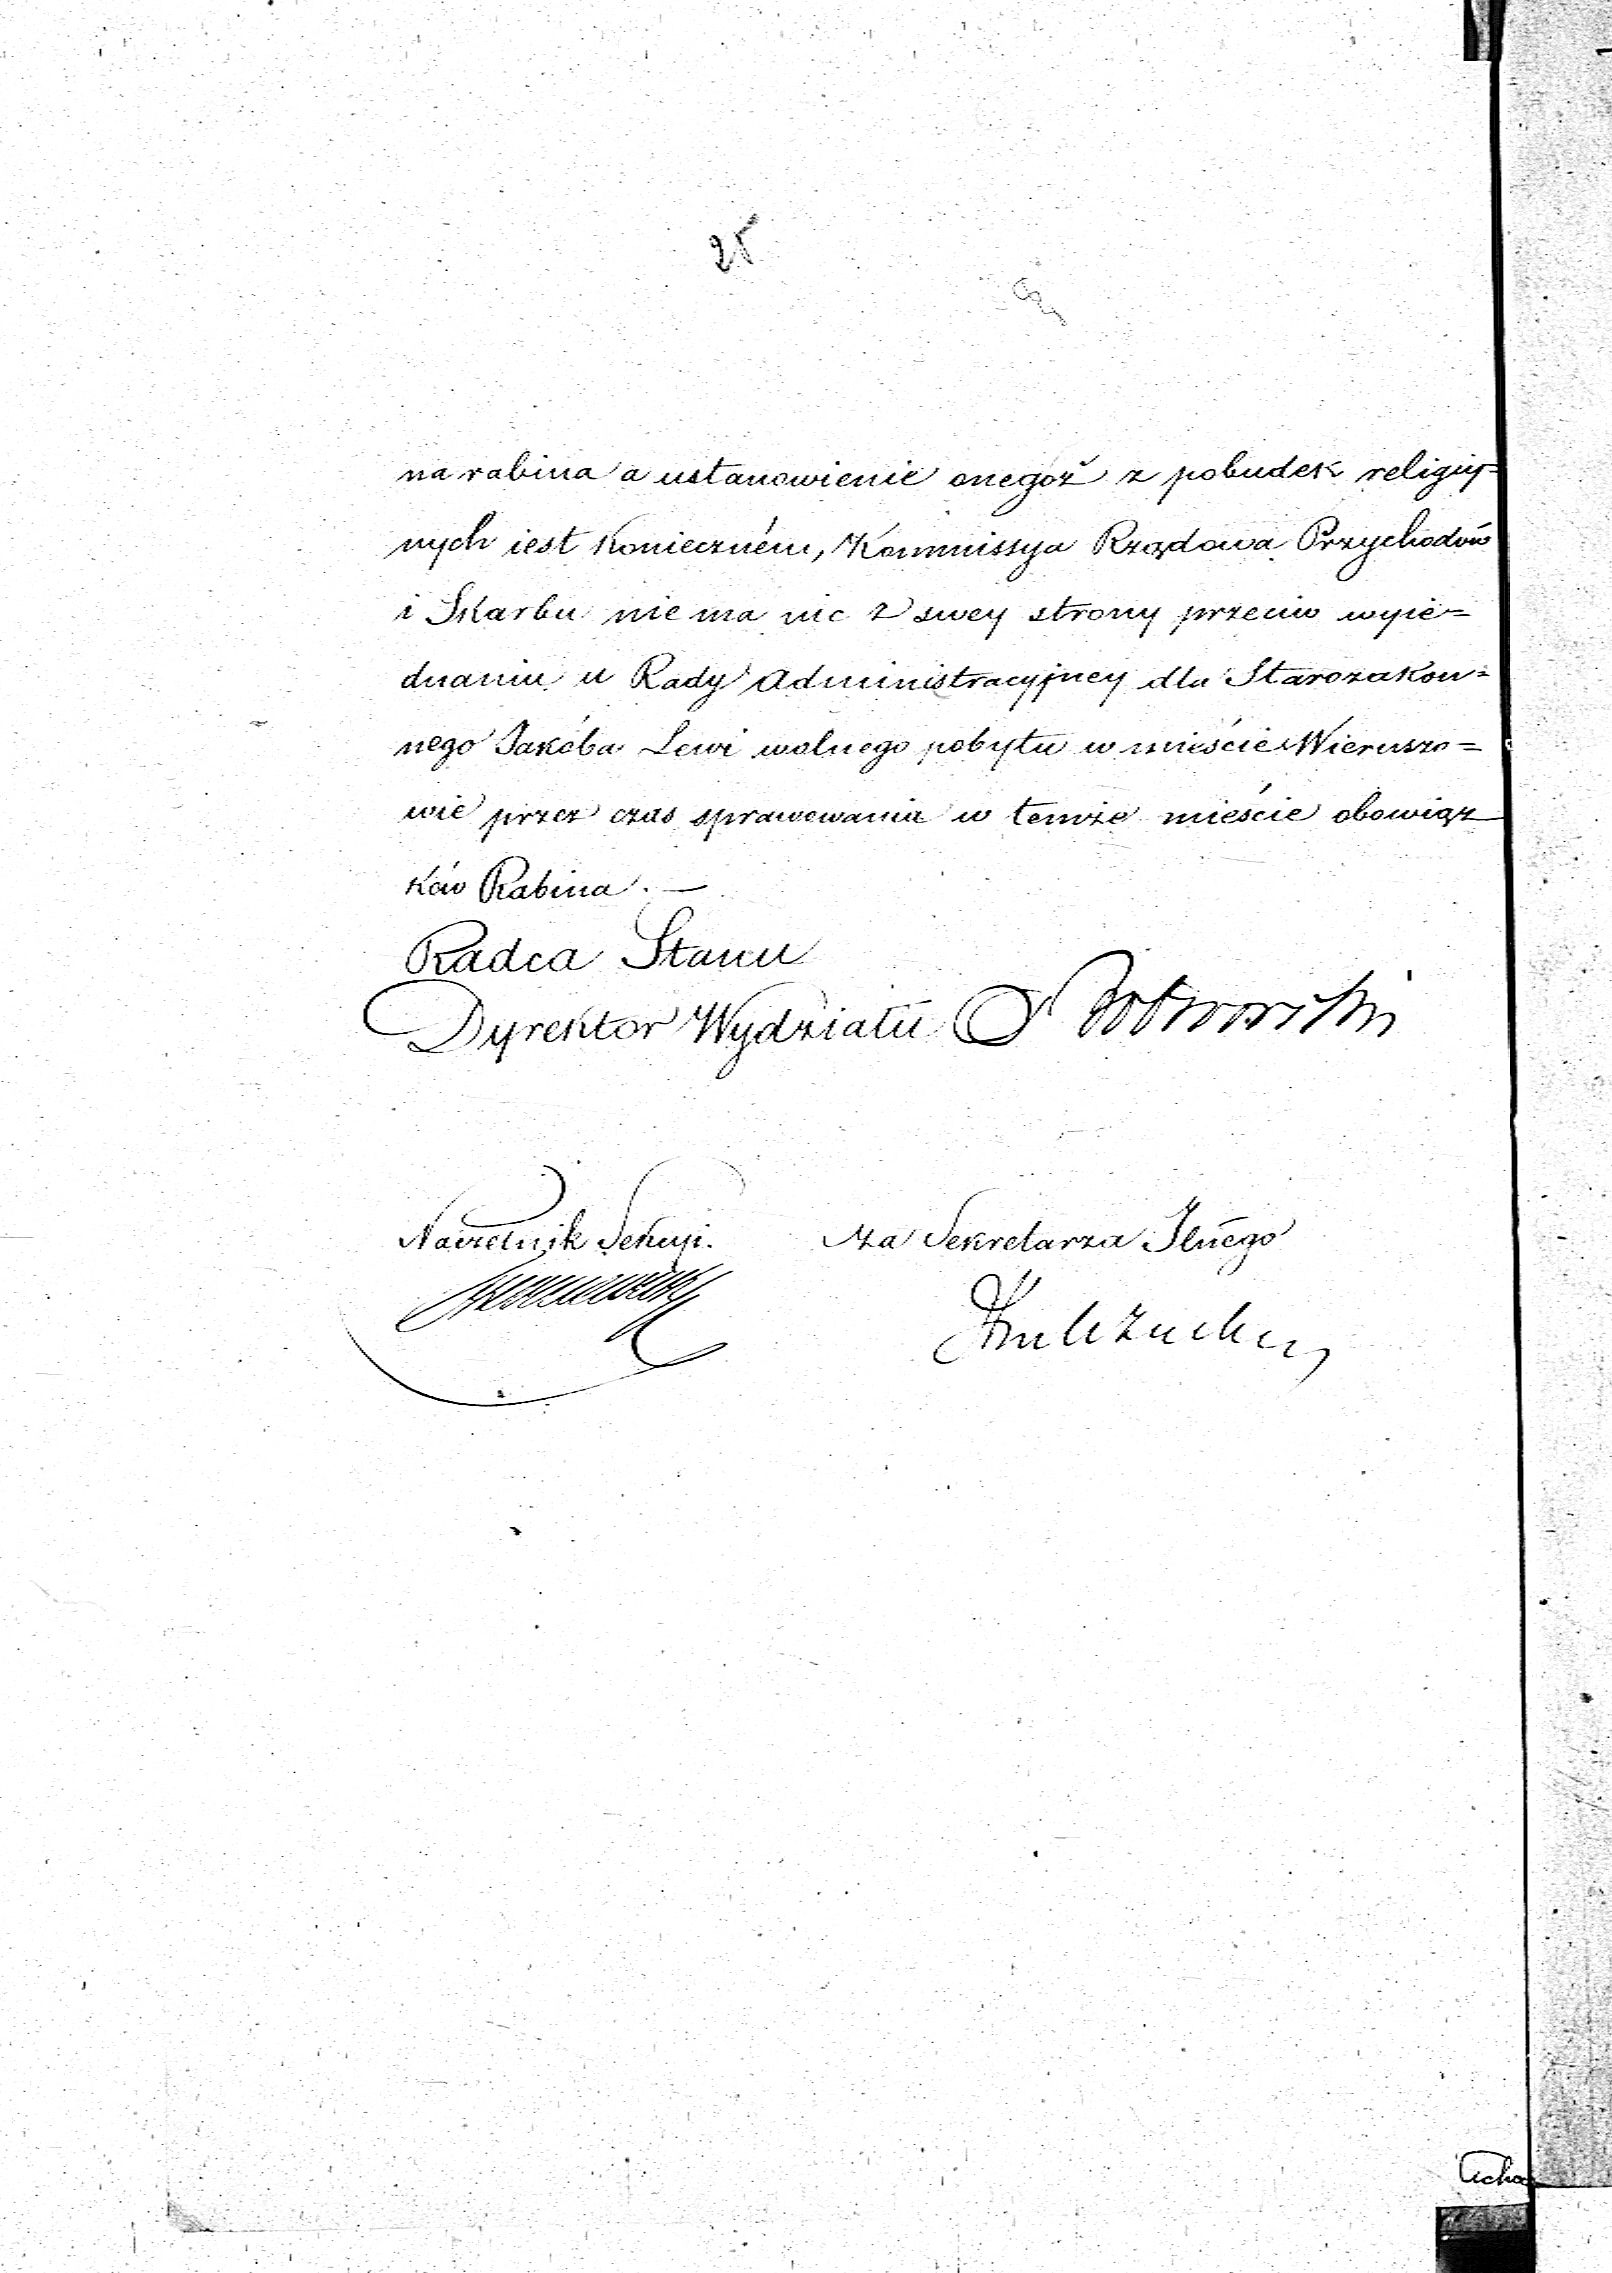 25
na rabina a ustanowienie onegoż z pobudek religiy=
nych iest konieczném, Kommissya Rządowa Przychodów
i Skarbu nie ma nic z swey strony przeciw wyie=
dnaniu u Rady Administracyjney dla Starozakon=
nego Jakóba Lewi wolnego pobytu w mieście Wieruszo=
wie przez czas sprawowania w temże mieście obowiąz
ków Rabina. —
Radca Stanu
Dyrektor Wydziału
Naczelnik Sekcyi. Za Sekretarza Jlnego